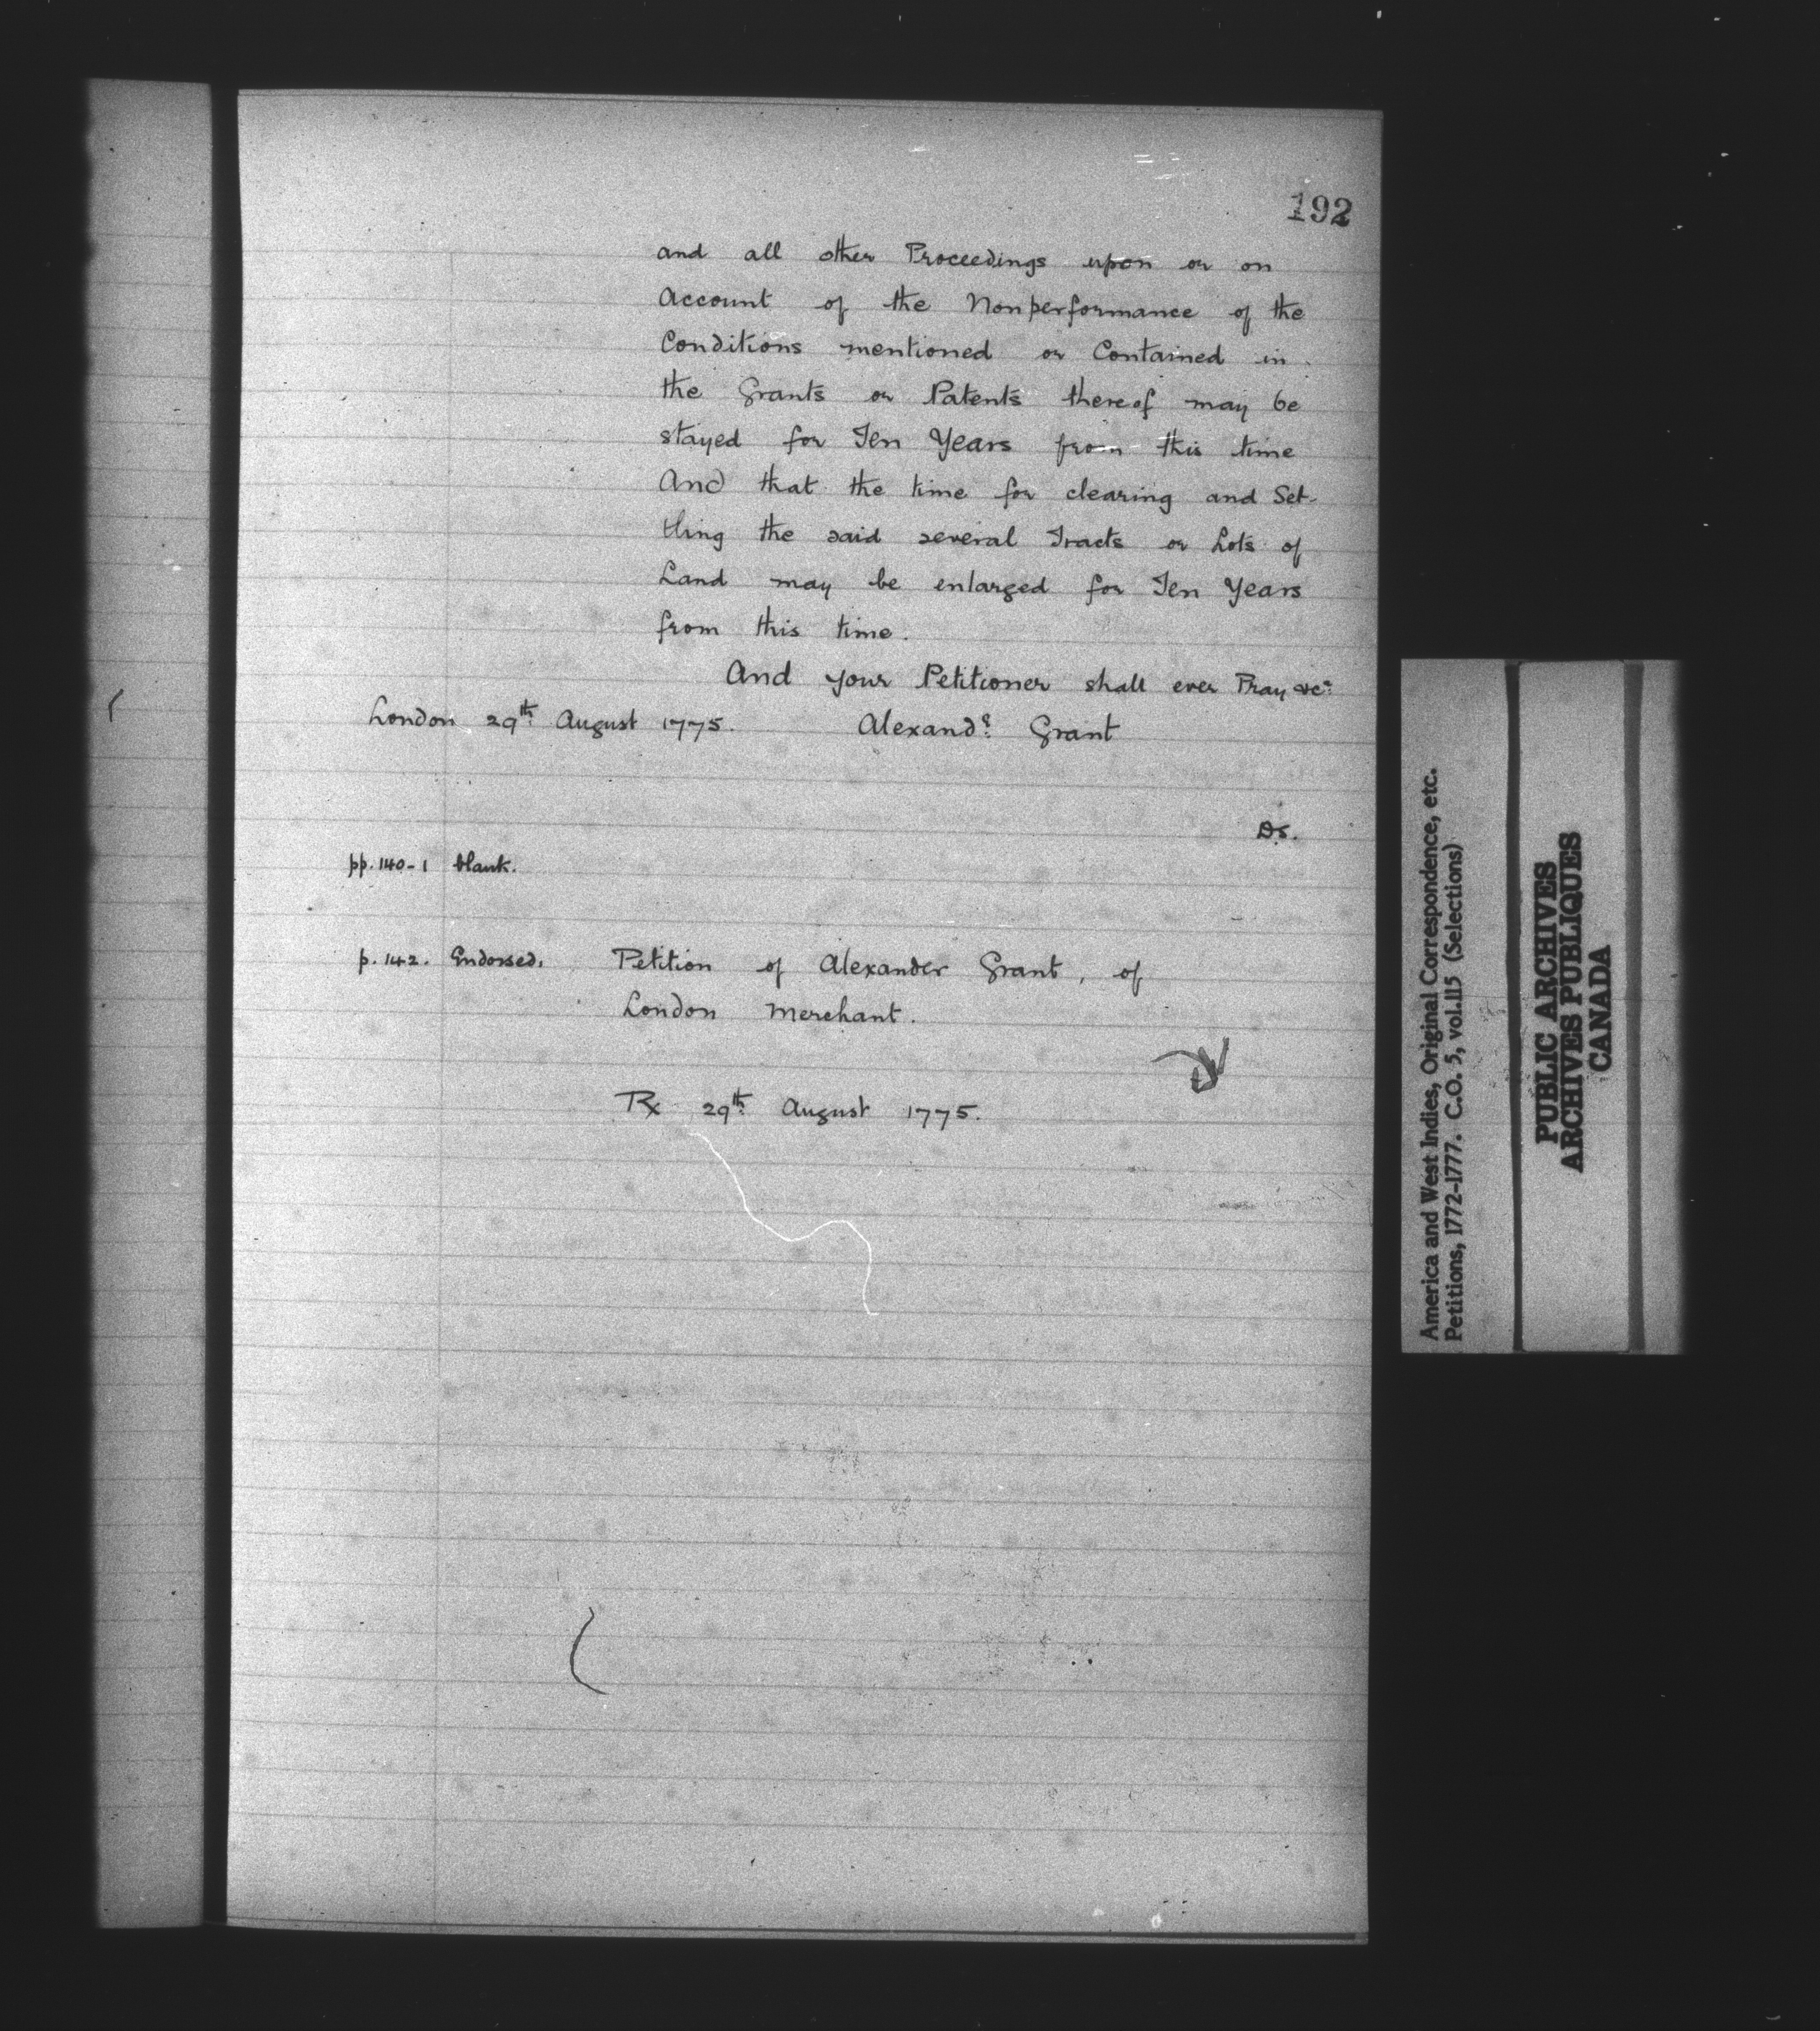 192
and all other Proceedings upon or on
Account of the Nonperformance of the
Conditions mentioned or Contained in
the Grants or Patents thereof may be
stayed for Ten Years from this time
And that the time for clearing and Set-
tling the said several Tracts or Lots of
Land may be enlarged for Ten Years
from this time.
And your Petitioner shall ever Pray &c.
London 29th August 1775. Alexandr. Grant
DS.
pp. 140-1 blank.
p. 142. Endorsed. Petition of Alexander Grant, of
London Merchant.
Rx 29th August 1775.
America and West Indies, Original Correspondence, etc.
Petitions, 1772-1777. C.O. 5, vol.115 (Selections)
PUBLIC ARCHIVES
ARCHIVES PUBLIQUES
CANADA